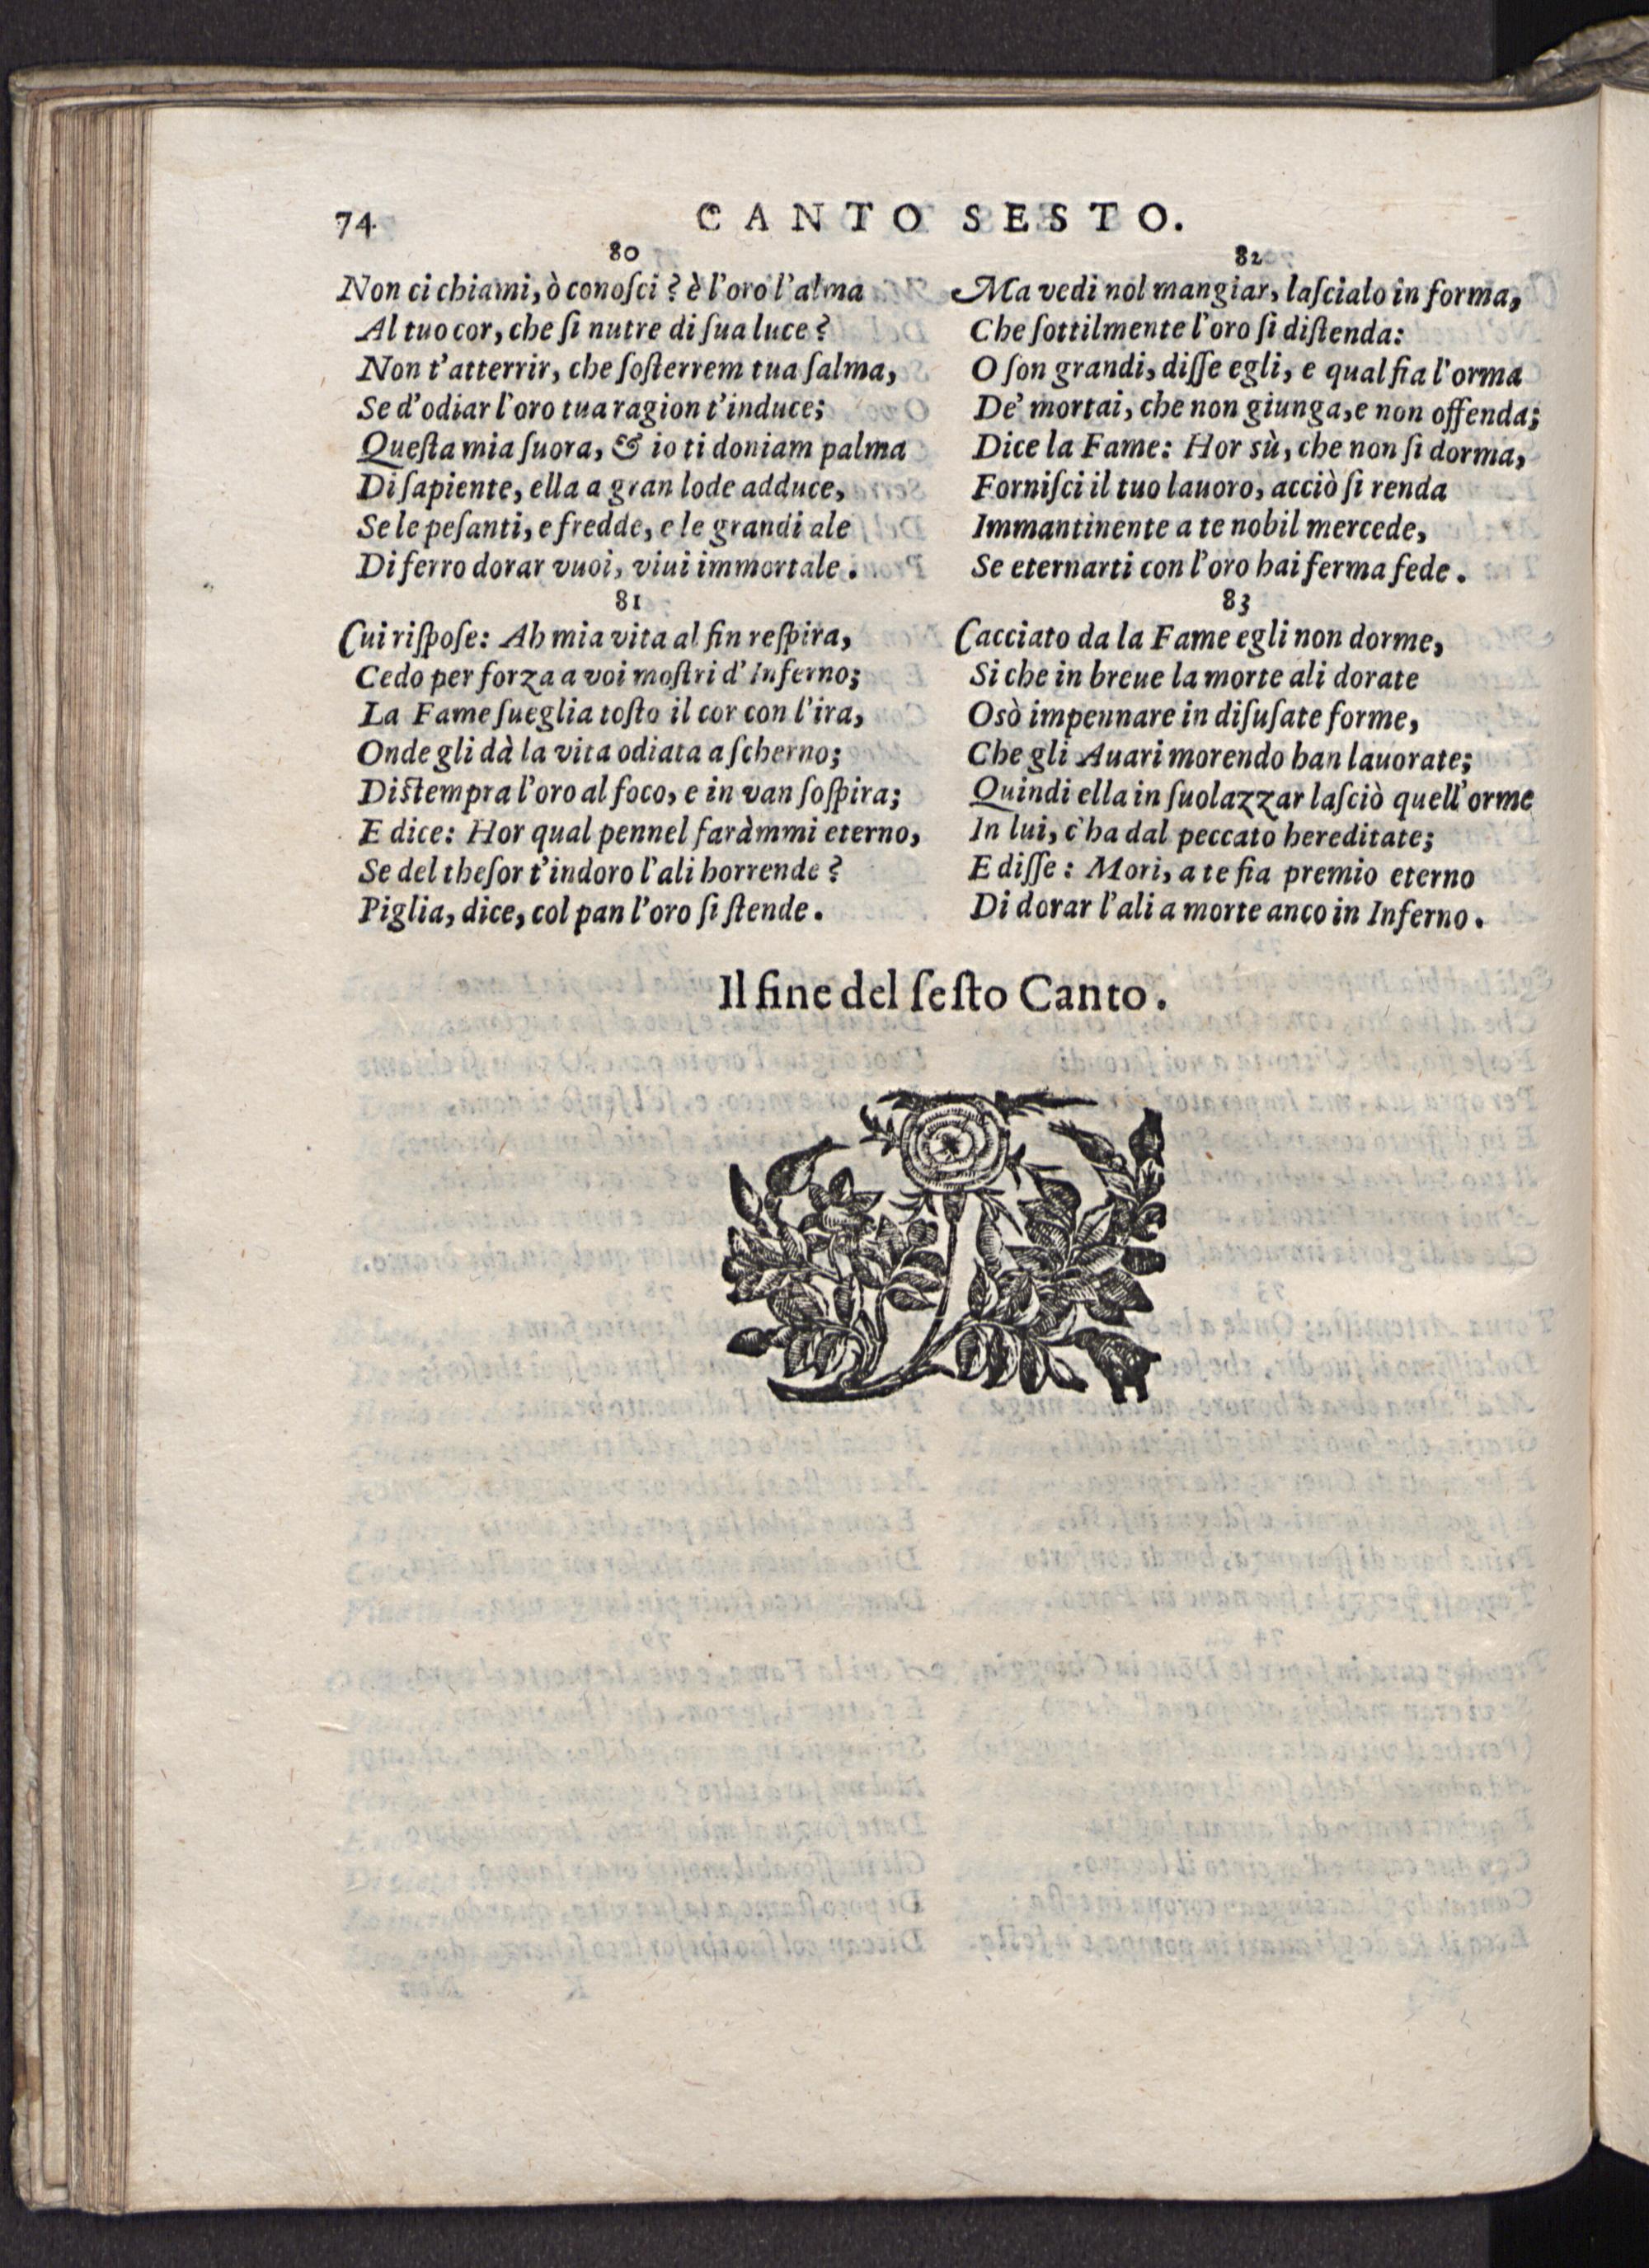 74 CANTO SESTO.
80
Non ci chiami, ò conoſci? è l'oro l'alma
Al tuo cor, che ſi nutre di ſua luce?
Non t'atterrir, che ſoſterrem tua ſalma,
Se d'odiar l'oro tua ragion t'induce;
Queſta mia ſuora, & io ti doniam palma
Di ſapiente, ella a gran lode adduce,
Se le peſanti, e fredde, e le grandi ale
Di ferro dorar vuoi, viui immortale.
81
Cui riſpoſe: Ah mia vita al fin reſpira,
Cedo per forza a voi moſtri d'Inferno;
La Fame ſueglia toſto il cor con l'ira,
Onde gli dà la vita odiata a ſcherno;
Diſtempra l'oro al foco, e in van ſoſpira;
E dice: Hor qual pennel faràmmi eterno,
Se del theſor t'indoro l'ali horrende?
Piglia, dice, col pan l'oro ſi ſtende.
82
Ma vedi nol mangiar, laſcialo in forma,
Che ſottilmente l'oro ſi diſtenda:
O ſon grandi, diſſe egli, e qual fia l'orma
De' mortai, che non giunga, e non offenda;
Dice la Fame: Hor sù, che non ſi dorma,
Forniſci il tuo lauoro, acciò ſi renda
Immantinente a te nobil mercede,
Se eternarti con l'oro hai ferma fede.
83
Cacciato da la Fame egli non dorme,
Si che in breue la morte ali dorate
Osò impennare in diſuſate forme,
Che gli Auari morendo han lauorate;
Quindi ella in ſuolazzar laſciò quell'orme
In lui, c'ha dal peccato hereditate;
E diſſe: Mori, a te fia premio eterno
Di dorar l'ali a morte anco in Inferno.
Il fine del ſeſto Canto.